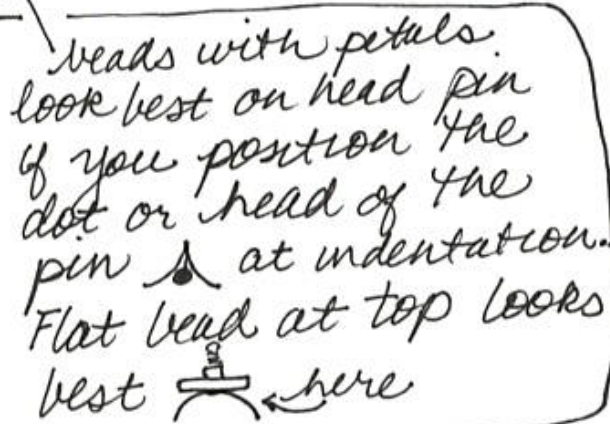 beads with petals
look best on head pin
if you position the
dot or head of the
pin at indentation.
Flat bead at top looks
best here